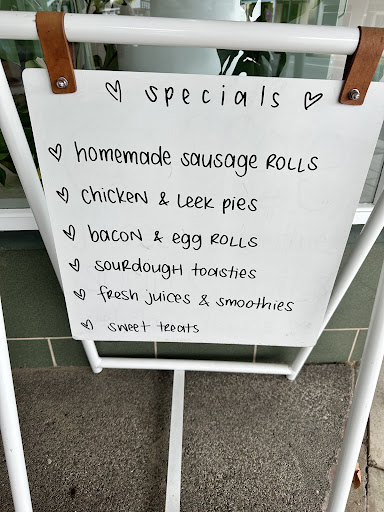 ♡ specials ♡
♡ homemade sausage ROLLS
♡ chicken & leek pies
♡ bacon & egg ROLLS
♡ sourdough toasties
♡ fresh juices & smoothies
♡ sweet treats